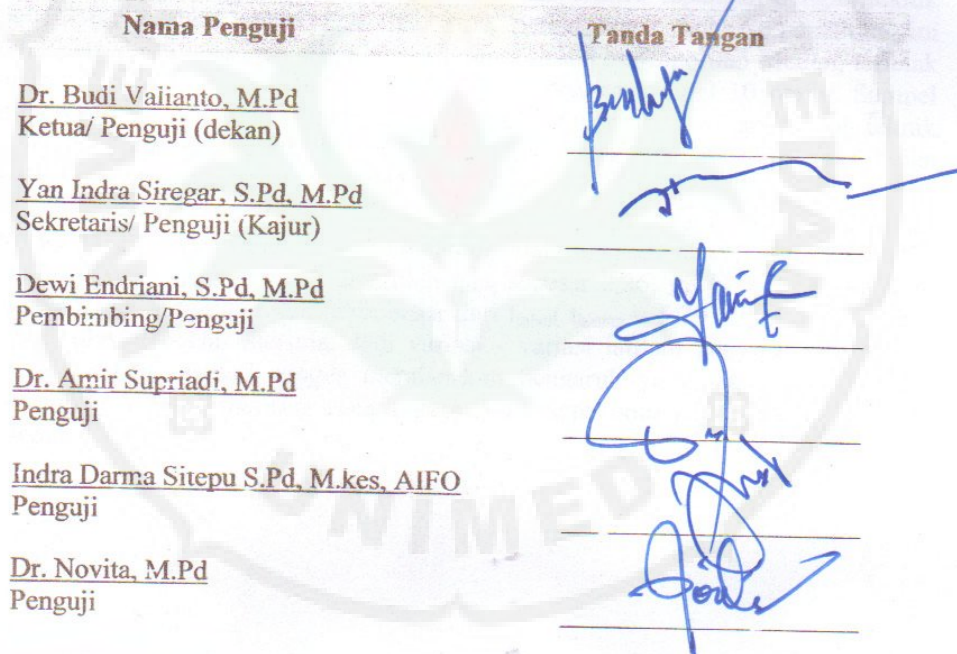 Nama Penguji Tanda Tangan
Dr. Budi Valianto, M.Pd
Ketua/ Penguji (dekan)
Yan Indra Siregar, S.Pd, M.Pd
Sekretaris/ Penguji (Kajur)
Dewi Endriani, S.Pd, M.Pd
Pembimbing/Penguji
Dr. Amir Supriadi, M.Pd
Penguji
Indra Darma Sitepu S.Pd, M.kes, AIFO
Penguji
Dr. Novita, M.Pd
Penguji
UNIMED